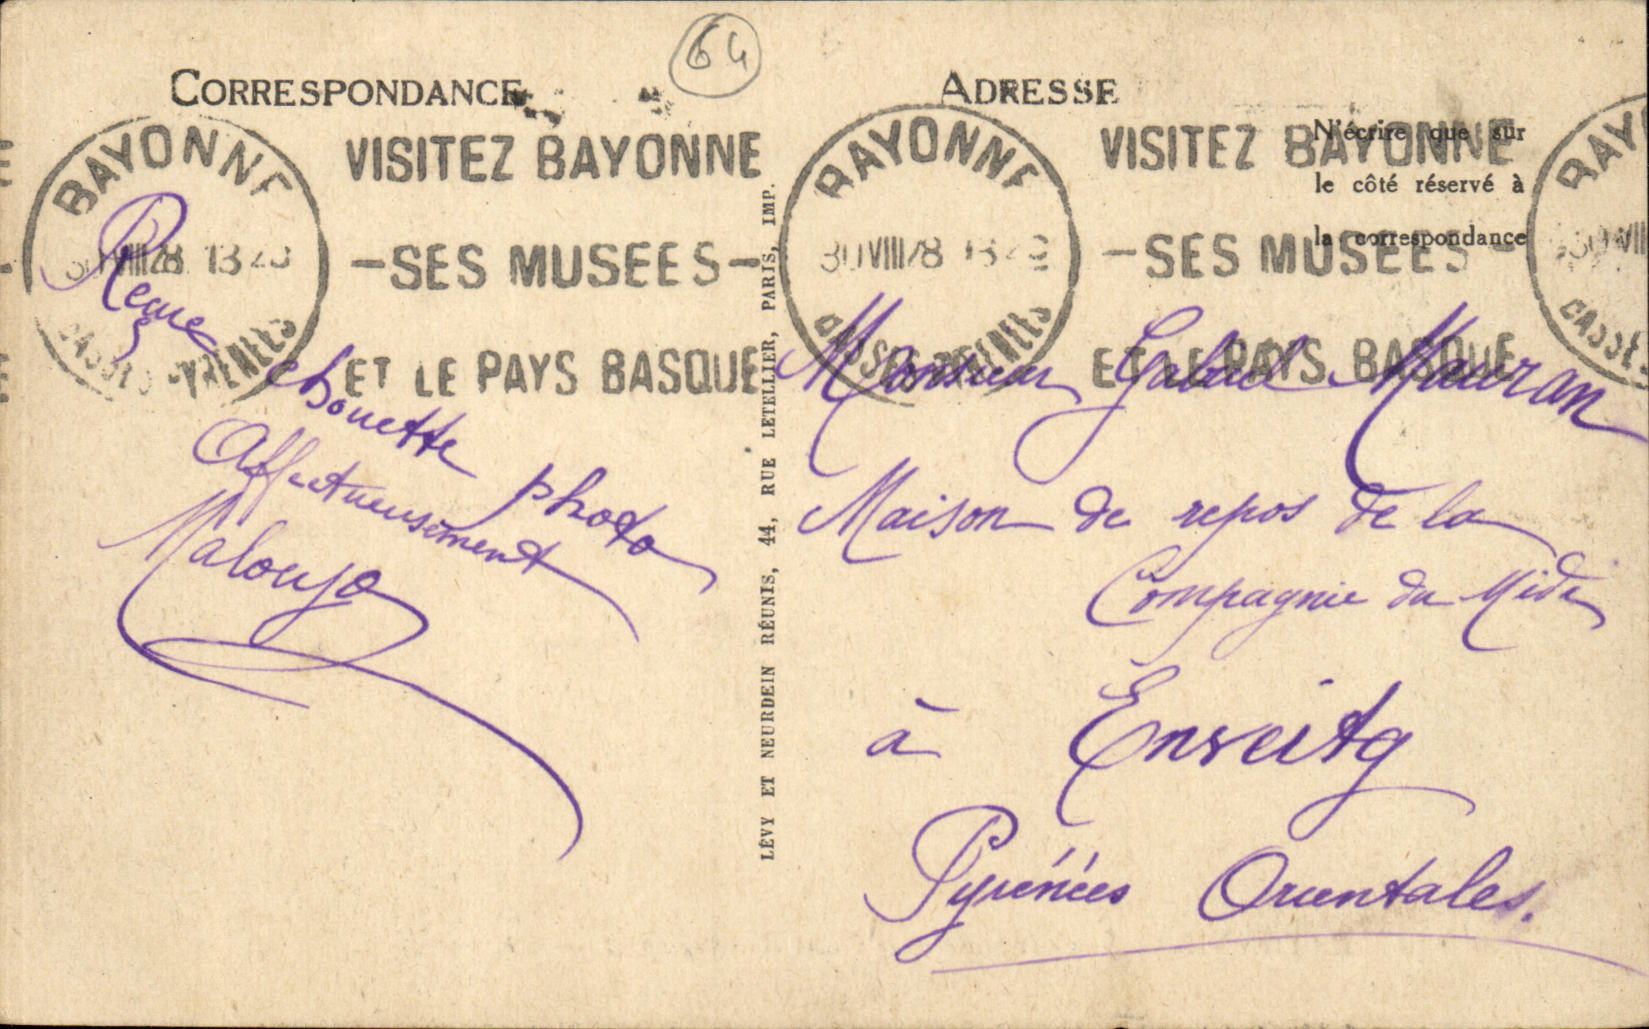 64
CORRESPONDANCE
ADRESSE
N'écrire que sur
le côté réservé à
la correspondance
BAYONNE
30 VIII 28 13
BASSES-PYRENEES
VISITEZ BAYONNE
-SES MUSEES-
ET LE PAYS BASQUE
BAYONNE
30 VIII 28 13
BASSES-PYRENEES
VISITEZ BAYONNE
-SES MUSEES-
ET LE PAYS BASQUE
Reçue
chouette photo
Affectueusement
LÉVY ET NEURDEIN RÉUNIS, 44, RUE LETELLIER, PARIS, IMP.
Monsieur Gabriel Mauran
Maison de repos de la
Compagnie du Midi
à Enveitg
Pyrénées Orientales.